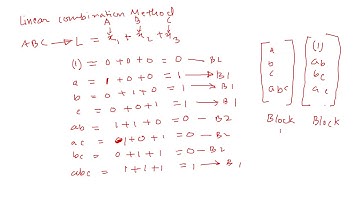 Linear combination Method
A B C
ABC → L = x₁ + x₂ + x₃
(1) = 0 + 0 + 0 = 0 — B2
a = 1 + 0 + 0 = 1 → B1
b = 0 + 1 + 0 = 1 → B1
c = 0 + 0 + 1 = 1 → B1
ab = 1 + 1 + 0 = 0 — B2
ac = 1 + 0 + 1 = 0 — B2
bc = 0 + 1 + 1 = 0 — B2
abc = 1 + 1 + 1 = 1 → B1
a
b
c
abc
Block
1
(1)
ab
bc
ac
Block